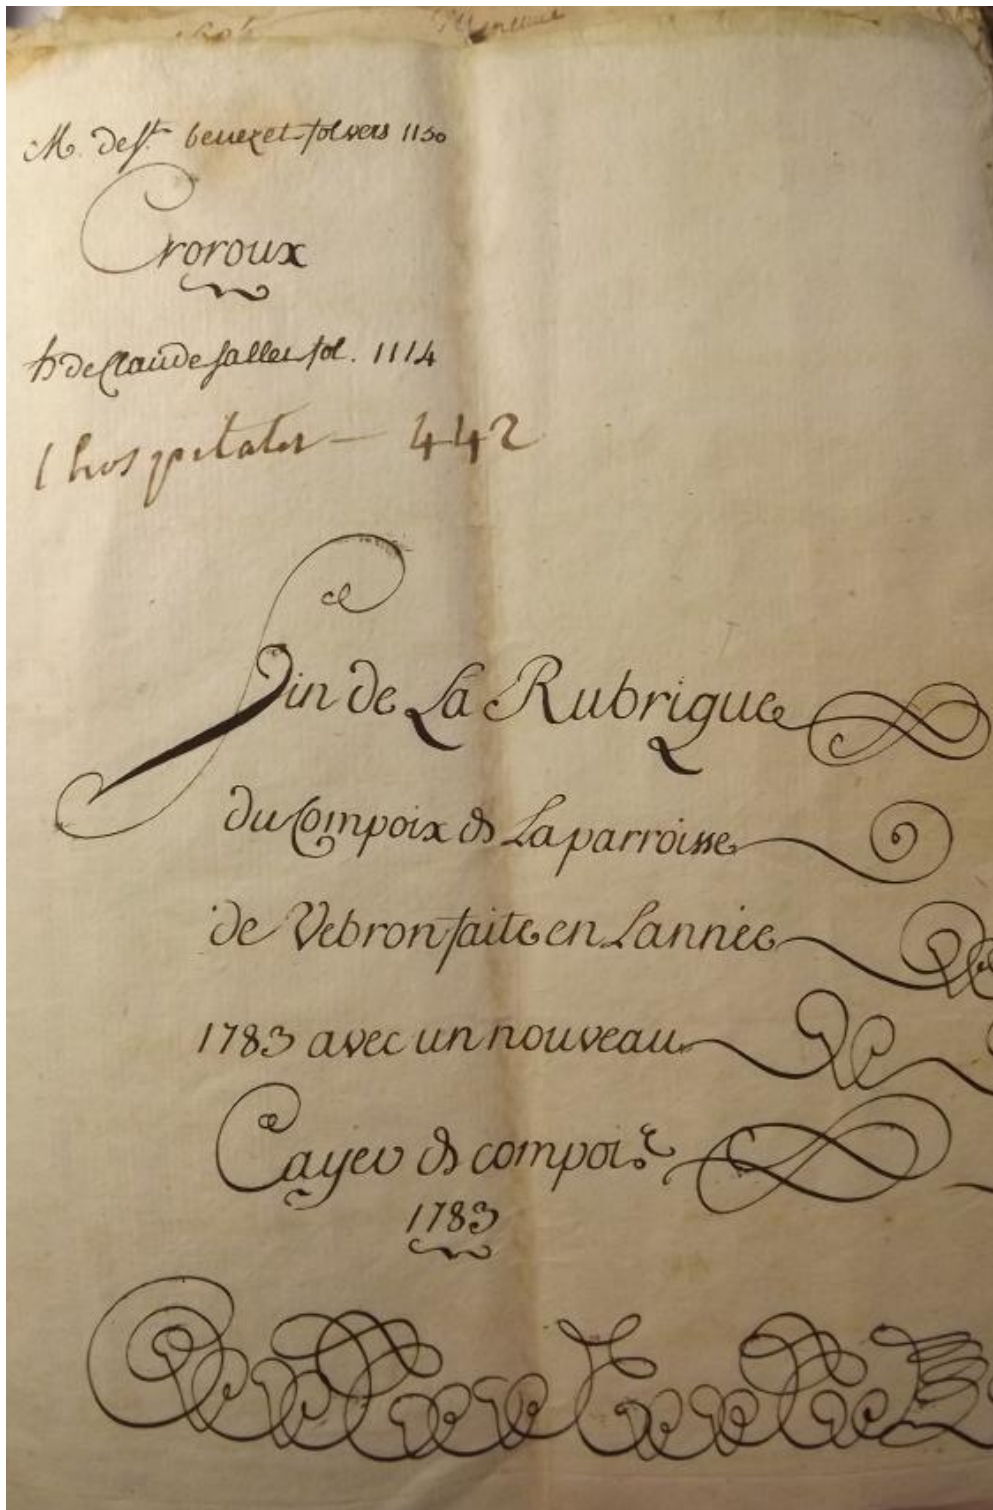 M. de St. benezet fol vers 1150
Croroux
h de Claude Salles fol. 1114
l hospitalet - 442
Fin de La Rubrique
du Compoix de La parroisse
de Vebron faite en Lannée
1783 avec un nouveau
Cayer de compoix
1783